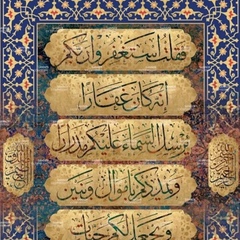 فقلت استغفروا ربكم
إنه كان غفارا
يرسل السماء عليكم مدرارا
ويمددكم بأموال وبنين
ويجعل لكم جنات